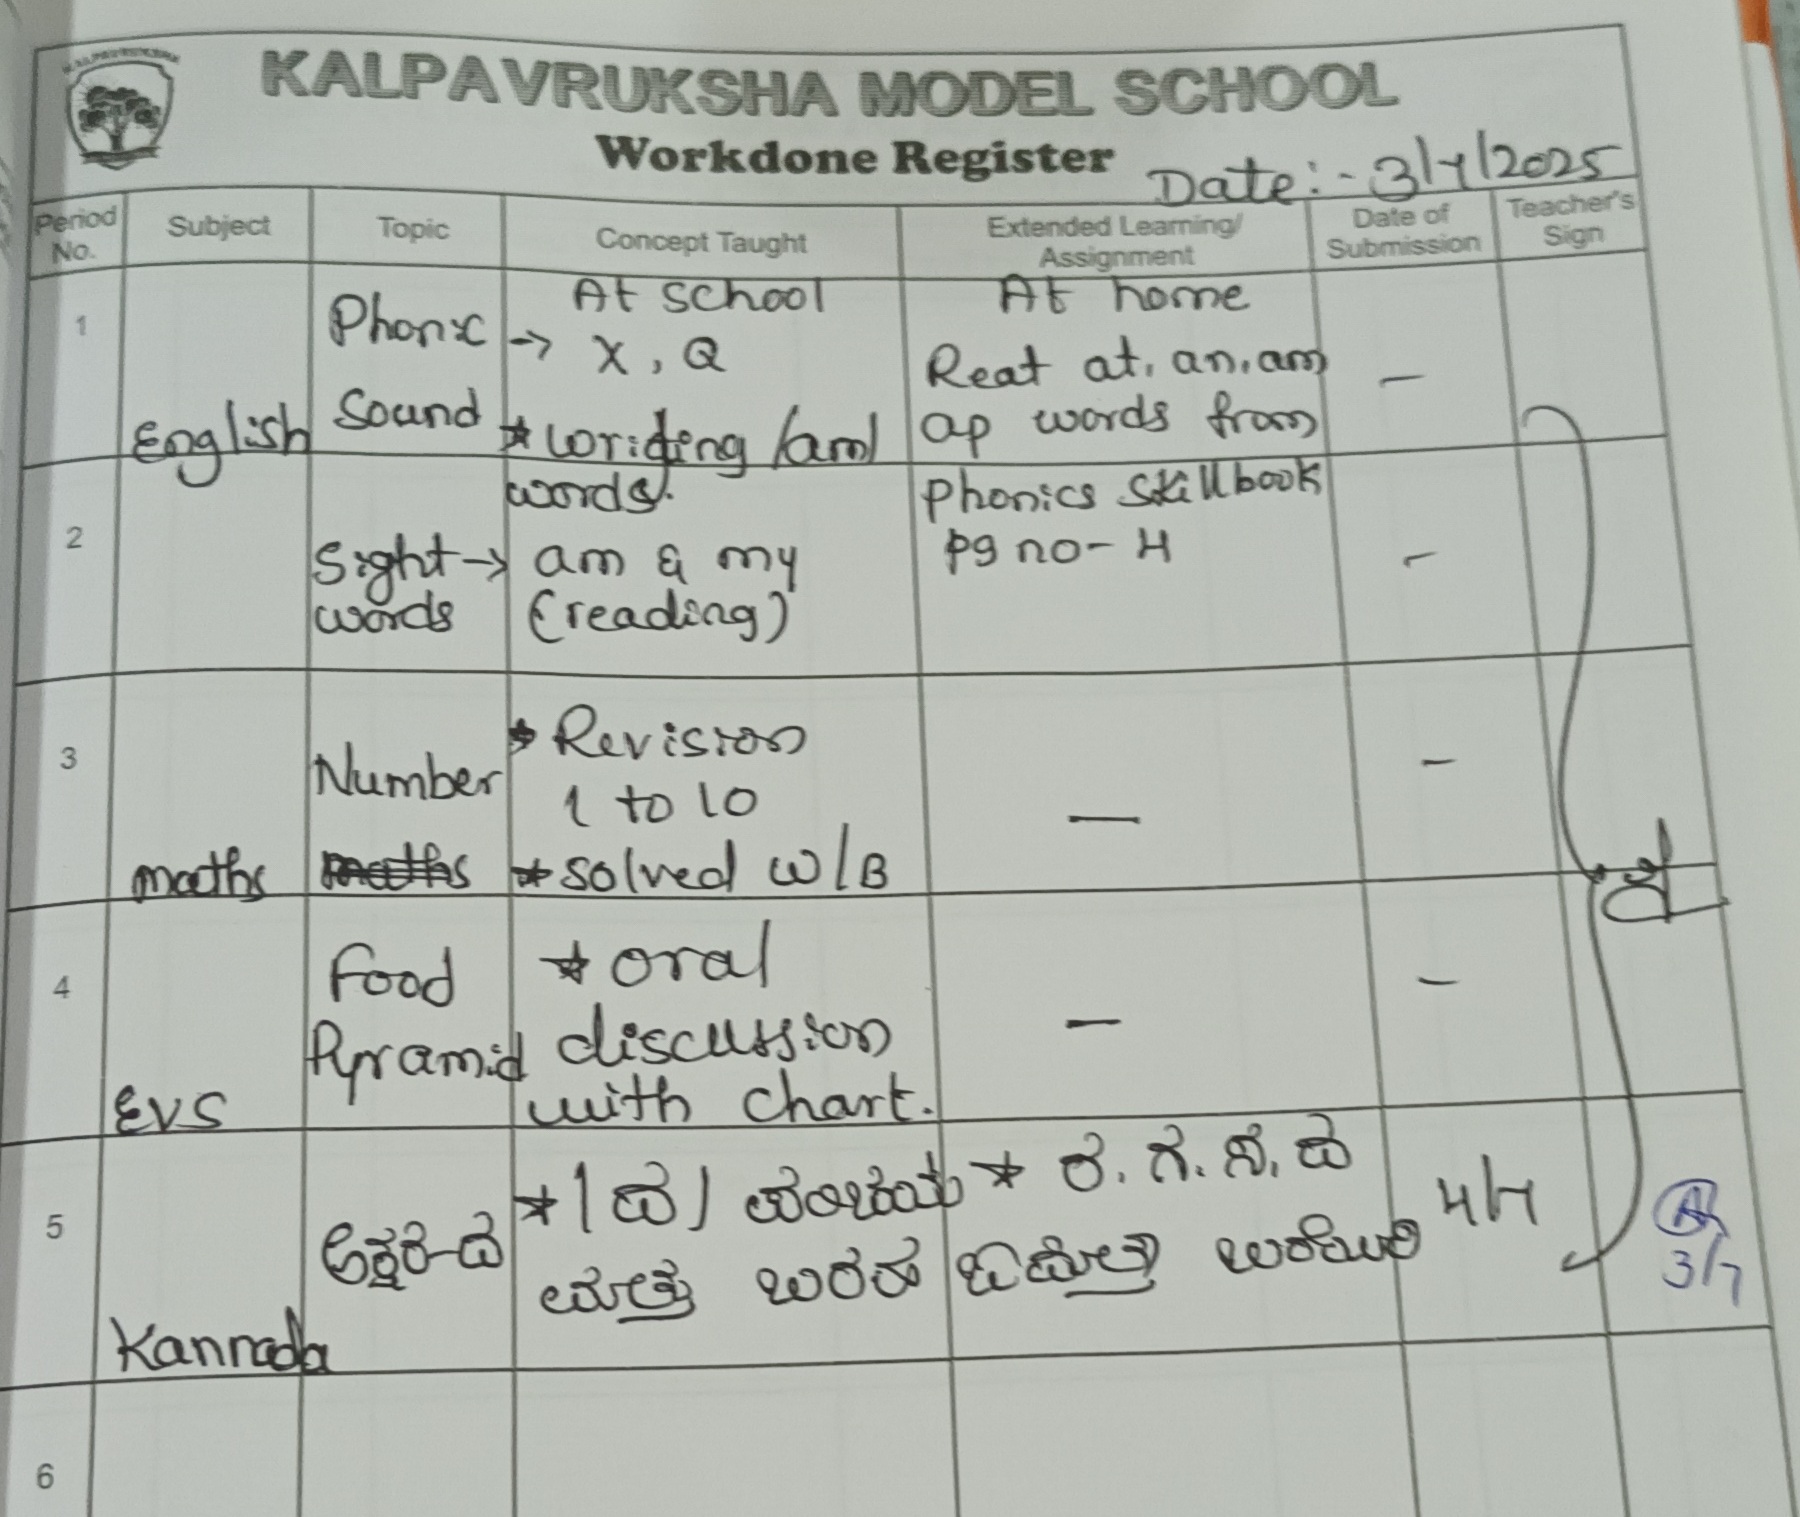 KALPAVRUKSHA
KALPAVRUKSHA MODEL SCHOOL
Workdone Register
Date:- 3/7/2025
Period No. Subject Topic Concept Taught Extended Learning/ Assignment Date of Submission Teacher's Sign
At school At home
1 Phonic → X, Q Reat at, an, am —
English Sound * writing /am/ ap words from
words. Phonics Skillbook
2 Sight → am & my pg no- 4 —
words (reading)
3 Number * Revision
1 to 10 — —
maths * solved w/B
4 Food * oral —
Pyramid discussion —
EVS with chart.
5 ಅಕ್ಷರ-ದ * /ದ/ * ರ. ಗ. ಸ. ದ 4/7
ಮತ್ತು ಬರಹ ಬರೆಯಿರಿ 3/7
Kannada
6